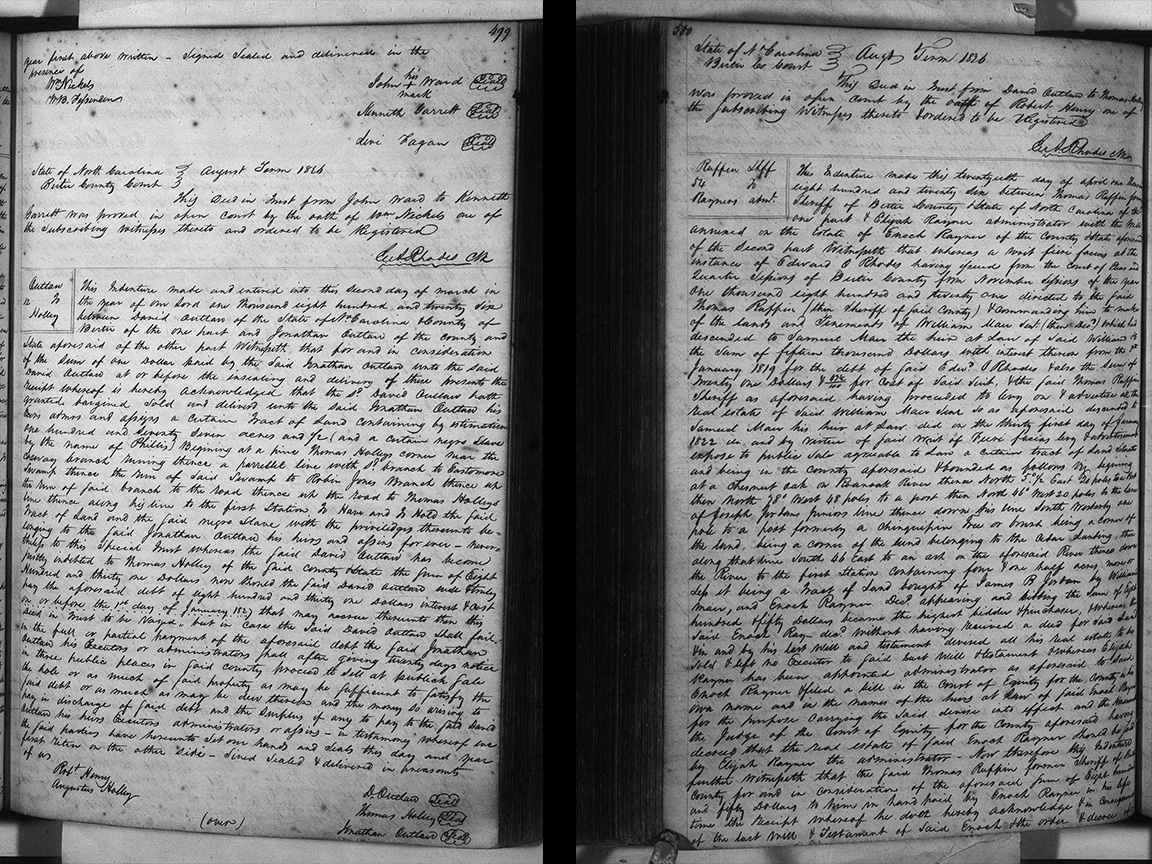 499
year first above written – Signed Sealed and delivered in the
presence of
Wm Nickels
John his X mark Ward Seal
W.B.
Kenneth Garrett Seal
Levi Fagan Seal
State of North Carolina August Term 1826
Bertie County Court
This Deed in trust from John Ward to Kenneth
Garrett was proved in open court by the oath of Wm Nickels one of
the Subscribing Witnesses thereto and ordered to be Registered
Jon S Rhodes Clk
Outlaw
12 To
Holley
This Indenture made and entered into this second day of march in
the year of our Lord one thousand eight hundred and twenty Six
between David Outlaw of the State of No Carolina & County of
Bertie of the one part and Jonathan Outlaw of the county and
State aforesaid of the other part Witnesseth, that for and in consideration
of the Sum of one Dollar paid by the Said Jonathan Outlaw unto the said
David Outlaw at or before the ensealing and delivery of these presents the
Receipt whereof is hereby acknowledged that the Sd. David Outlaw hath
granted bargained Sold and delivered unto the said Jonathan Outlaw his
heirs and assigns a certain Tract of Land containing by estimation
one hundred and Seventy Seven acres and (and a certain negro Slave
by the name of Phillis) Begining at a pine Thomas Holleys corner near the
branch runing thence a parrellel line with Sd. branch to
Swamp thence the run of Said Swamp to Robin Jones Branch thence up
the run of said branch to the Road thence up the Road to Thomas Holleys
line thence along his line to the first Station To Have and To Hold the said
Tract of Land and the said negro Slave with the priviledges thereunto be-
longing to the said Jonathan Outlaw his heirs and assigns forever – never-
theless to this Special Trust whereas the said David Outlaw has become
justly indebted to Thomas Holley of the said county & State the Sum of Eight
Hundred and thirty one Dollars now should the said David Outlaw well & truly
pay the aforesaid debt of eight hundred and thirty one Dollars interest & cost
on or before the 1st day of January 1827 that may accrue thereunto then this
Deed in Trust to be Void. but in case the Said David Outlaw Shall fail
in the full or partial payment of the aforesaid debt the said Jonathan
Outlaw his Executors or administrators shall after giving twenty days notice
in three public places in said county proceed to sell at publick Sale
the hole or as much of said property as may be sufficient to Satisfy the
said debt or as much as may be due thereon and the money so arising to
pay in discharge of said debt and the Surplus if any to pay to the said David
Outlaw his heirs Executors administrators or assigns – in testimony whereof we
the said parties have hereunto Set our hands and seals this day and year
first Riten on the other side – Sined Sealed & delivered in presents
of us
Robt. Henry
Augustus Holley
D. Outlaw Seal
Thomas Holley Seal
Jonathan Outlaw Seal
(over)
500
State of No Carolina Augt Term 1826
Bertie Co Court
This Deed in trust from David Outlaw to Thomas Holley
was proved in open Court by the oath of Robert Henry one of
the subscribing Witnesses thereto & ordered to be Registered
Jon S Rhodes Clk
Ruffin Shff
54 To
Rayners admr.
This Indenture made this twentyeth day of april one thousand
eight hundred and twenty Six between Thomas Ruffin former
Sheriff of Bertie County & State of North Carolina of the
one part & Elijah Rayner administrator with the Will
annexed on the Estate of Enoch Rayner of the County & State aforesaid
of the Second part Witnesseth that whereas a writ fiera facias at the
instance of Edward O Rhodes having issued from the Court of Pleas and
Quarter Sessions of Bertie County from November Sessions of the year
One thousand eight hundred and twenty one directed to the said
Thomas Ruffin (then Sheriff of said County) & commanding him to make
of the lands and Tenements of William Maer Senr. (then Decd.) which had
descended to Samuel Maer the heir at Law of Said William
the Sum of fifteen thousand Dollars with interest thereon from the
January 1819 for the debt of said Edwd. O Rhodes & also the Sum of
Twenty one Dollars & for Cost of Said Suit, & the said Thomas Ruffin
Sheriff as aforesaid having proceeded to levy on & advertise all the
real estate of said William Maer decd so as aforesaid descended to
Samuel Maer his heir at Law did on the thirty first day of January
1822 and by virtue of said writ of Fieri facias levy & advertisement
expose to public sale agreeable to Law a certain tract of Land Situate
and being in the County aforesaid & bounded as follows Viz begining
at a Chesnut oak on Roanoak River thence North 5° ½ East 20 poles to a Post
then North 78° West 48 poles to a post then North 46° West 20 poles to the line
of Joseph Jordans Juniors line thence down his line South Westerly one
pole to a post formerly a Chenquepin Tree or bush being a corner of
the land, being a corner of the land belonging to the Cedar Landing, then
along that line South 46 East to an ash on the aforesaid River thence down
the River to the first Station containing four & one half acres more or
less it being a Tract of Land bought of James B Jordan by William
Maer, and Enoch Rayner Decd. appearing and bidding the Sum of Eight
hundred & fifty Dollars became the highest bidder & purchaser, & whereas the
Said Enoch Ray decd. without having Received a deed for said Land
& in and by his last will and testament devised all his real estate to be
Sold & left no Executor to said Last Will & testament & whereas Elijah
Rayner has been appointed administrator as aforesaid to said
Enoch Rayner & filed a bill in the Court of Equity for the County in his
own name and in the names of the heirs at Law of said Enoch Rayner
for the purpose carrying the said devise into effect and the Honorable
the Judge of the Court of Equity for the County aforesaid having
decreed that the real estate of said Enoch Rayner should be sold
by Elijah Rayner the administrator – Now therefore this Indenture
further Witnesseth that the said Thomas Ruffin former Sheriff of Bertie
County for and in consideration of the aforesaid Sum of Eight hundred
and fifty Dollars to him in hand paid by Enoch Rayner in his life
time the Receipt whereof he doth hereby acknowledge & in consequence
of the last will & Testament of Said Enoch & the order & decree of